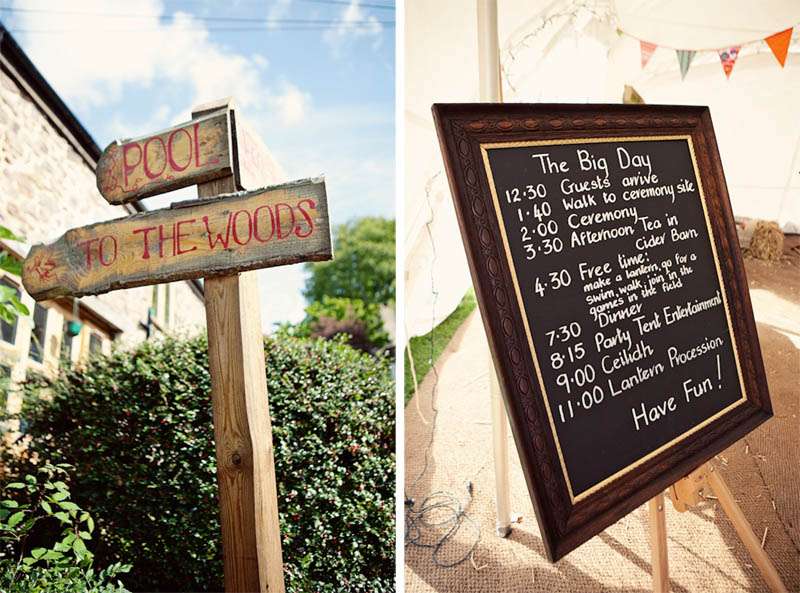 POOL
TO THE WOODS
The Big Day
12.30 Guests arrive
1.40 Walk to ceremony site
2.00 Ceremony
3.30 Afternoon Tea in
Cider Barn
4.30 Free time:
make a lantern, go for a
swim, walk, join in the
games in the field
7.30 Dinner
8.15 Party Tent Entertainment
9.00 Ceilidh
11.00 Lantern Procession
Have Fun!